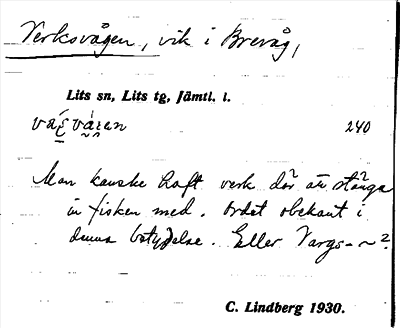 Verksvågen, vik i Brevåg,
Lits sn, Lits tg, Jämtl. l.
240
Man kanske haft verk där att stänga
in fisken med. Ordet obekant i
denna betydelse. Eller Vargs- ~ ?
C. Lindberg 1930.